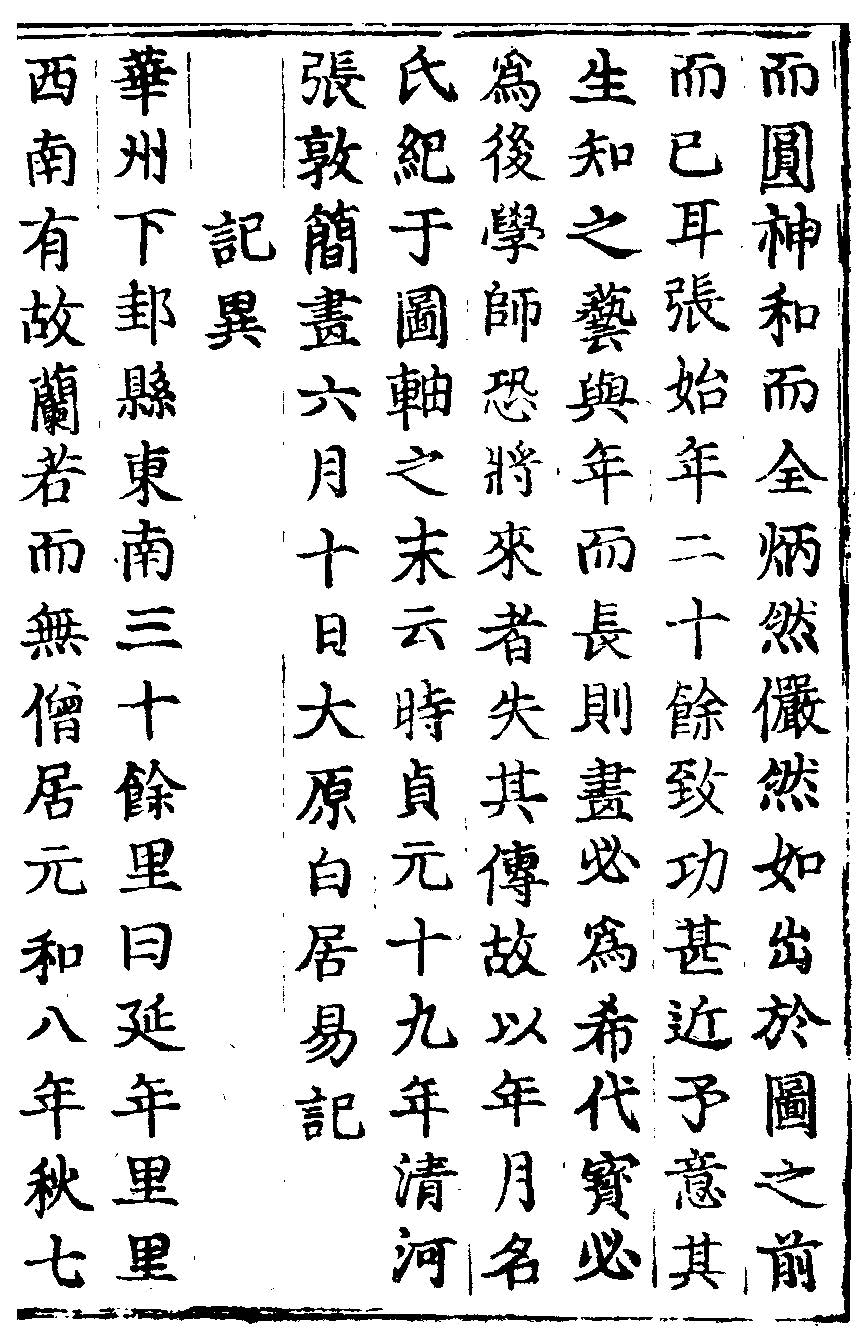 而圓神和而全炳然儼然如出於圖之前
而已耳張始年二十餘致功甚近予意其
生知之藝與年而長則畫必爲希代寳必
爲後學師恐將來者失其傳故以年月名
氏紀于圖軸之末云時貞元十九年清河
張敦簡畫六月十日大原白居易記
記異
華州下邽縣東南三十餘里曰延年里里
西南有故蘭若而無僧居元和八年秋七